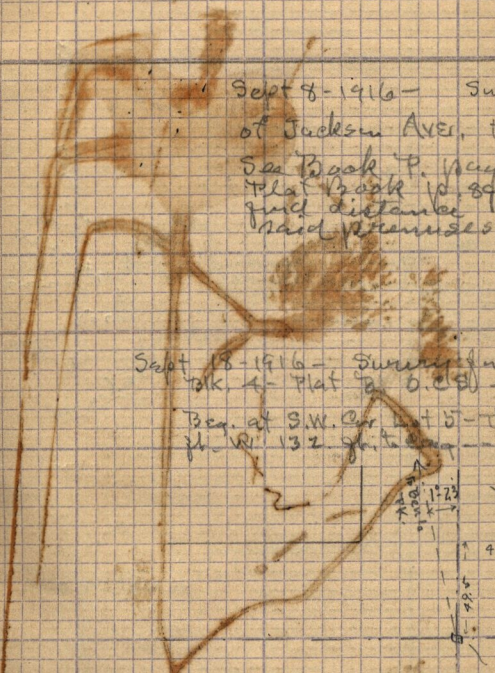 Sept 8-1916- Su
of Jackson Aver.
See Book P. pag
Plat Book p. 89
find distance
said premises
Sept 18-1916- Survey
Blk. 4- Plat B. O.C.S.
Beg. at S.W. Cor Lot 5-
ft. W. 132 ft. to beg
1°-23
49.5